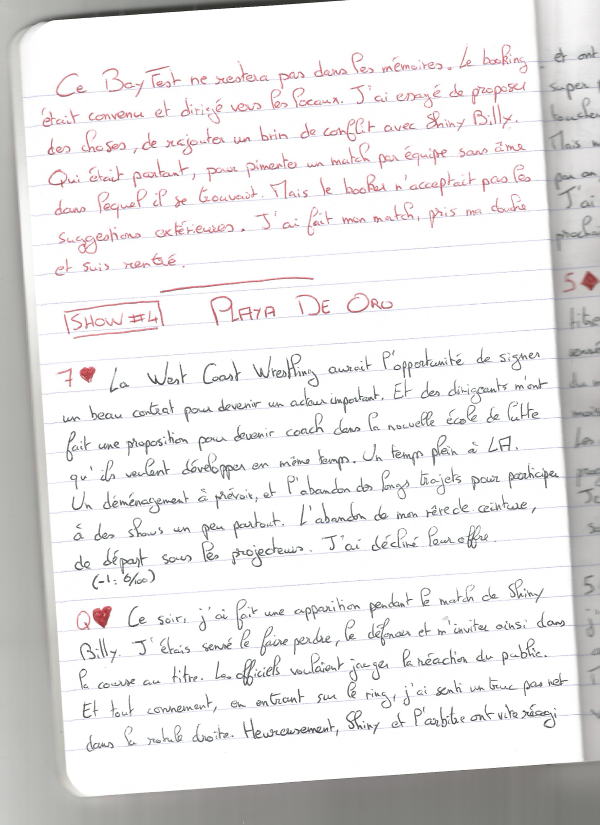 Ce Bay Test ne restera pas dans les mémoires. Le booking
était convenu et dirigé vers les locaux. J'ai essayé de proposer
des choses, de rajouter un brin de conflit avec Shiny Billy.
Qui était partant, pour pimenter un match par équipe sans âme
dans lequel il se trouvait. Mais le booker n'acceptait pas les
suggestions extérieures. J'ai fait mon match, pris ma douche
et suis rentré.
SHOW #4 PLAYA DE ORO
7♥ La West Coast Wrestling aurait l'opportunité de signer
un beau contrat pour devenir un acteur important. Et des dirigeants m'ont
fait une proposition pour devenir coach dans la nouvelle école de lutte
qu'ils veulent développer en même temps. Un temps plein à LA.
Un déménagement à prévoir, et l'abandon des longs trajets pour participer
à des shows un peu partout. L'abandon de mon rêve de ceinture,
de départ sous les projecteurs. J'ai décliné leur offre.
(-1: 6/∞)
Q♥ Ce soir, j'ai fait une apparition pendant le match de Shiny
Billy. J'étais sensé le faire perdre, le défoncer et m'inviter ainsi dans
la course au titre. Les officiels voulaient jauger la réaction du public.
Et tout connement, en entrant sur le ring, j'ai senti un truc pas net
dans la rotule droite. Heureusement, Shiny et l'arbitre ont vite réagi
et ont
super
Mais
par an,
J'ai
prochai
5♦
titre
sensé
du m
mais
Les
prog
Je
su
5
j'a